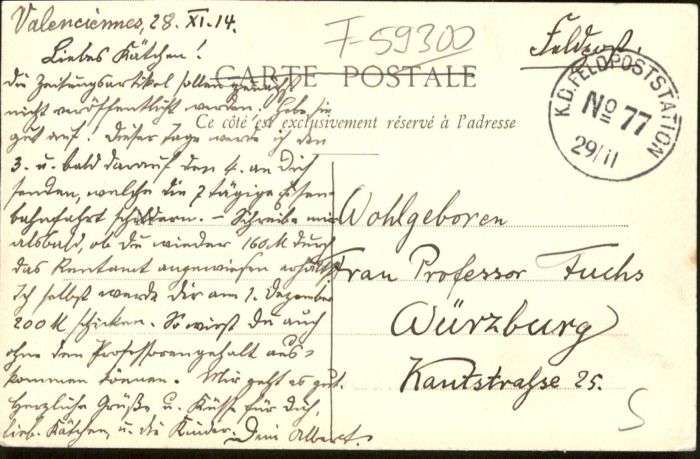 Valenciennes, 28. XI. 14.
F-59300
Feldpost.
Liebes Kätchen!
Die Zeitungsartikel sollen
nicht veröffentlicht werden. Hebe sie
gut auf. Dieser Tage werde ich den
3. u. bald darauf den 4. an Dich
senden, welche die 7 tägige Eisen-
bahnfahrt schildern. – Schreibe mir
alsbald, ob Du wieder 160 M durch
das Rentamt angewiesen erhältst.
Ich selbst werde Dir am 1. Dezember
200 M schicken. So wirst Du auch
ohne den Professorengehalt aus-
kommen können. Mir geht es gut.
Herzliche Grüße u. Küsse für Dich,
lieb. Kätchen, u. die Kinder. Dein Albert.
CARTE POSTALE
Ce côté est exclusivement réservé à l'adresse
K.D. FELDPOSTSTATION
No 77
29/11
Wohlgeboren
Frau Professor Fuchs
Würzburg
Kantstraße 25.
5